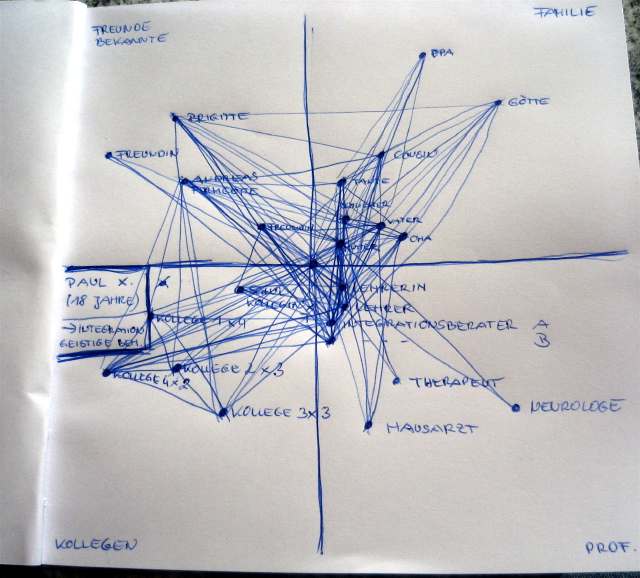 FREUNDE
BEKANNTE
FAMILIE
OPA
GÖTTE
BRIGITTE
FREUNDIN
COUSIN
ANDREAS
TANTE
VATER
OMA
PAUL X.
(18 JAHRE)
→ INTEGRATION
GEISTIGE BEH.
LEHRERIN
LEHRER
KOLLEGE 1 x 4
INTEGRATIONSBERATER A
B
KOLLEGE 2 x 3
KOLLEGE 4 x 2
KOLLEGE 3 x 3
THERAPEUT
NEUROLOGE
HAUSARZT
KOLLEGEN
PROF.